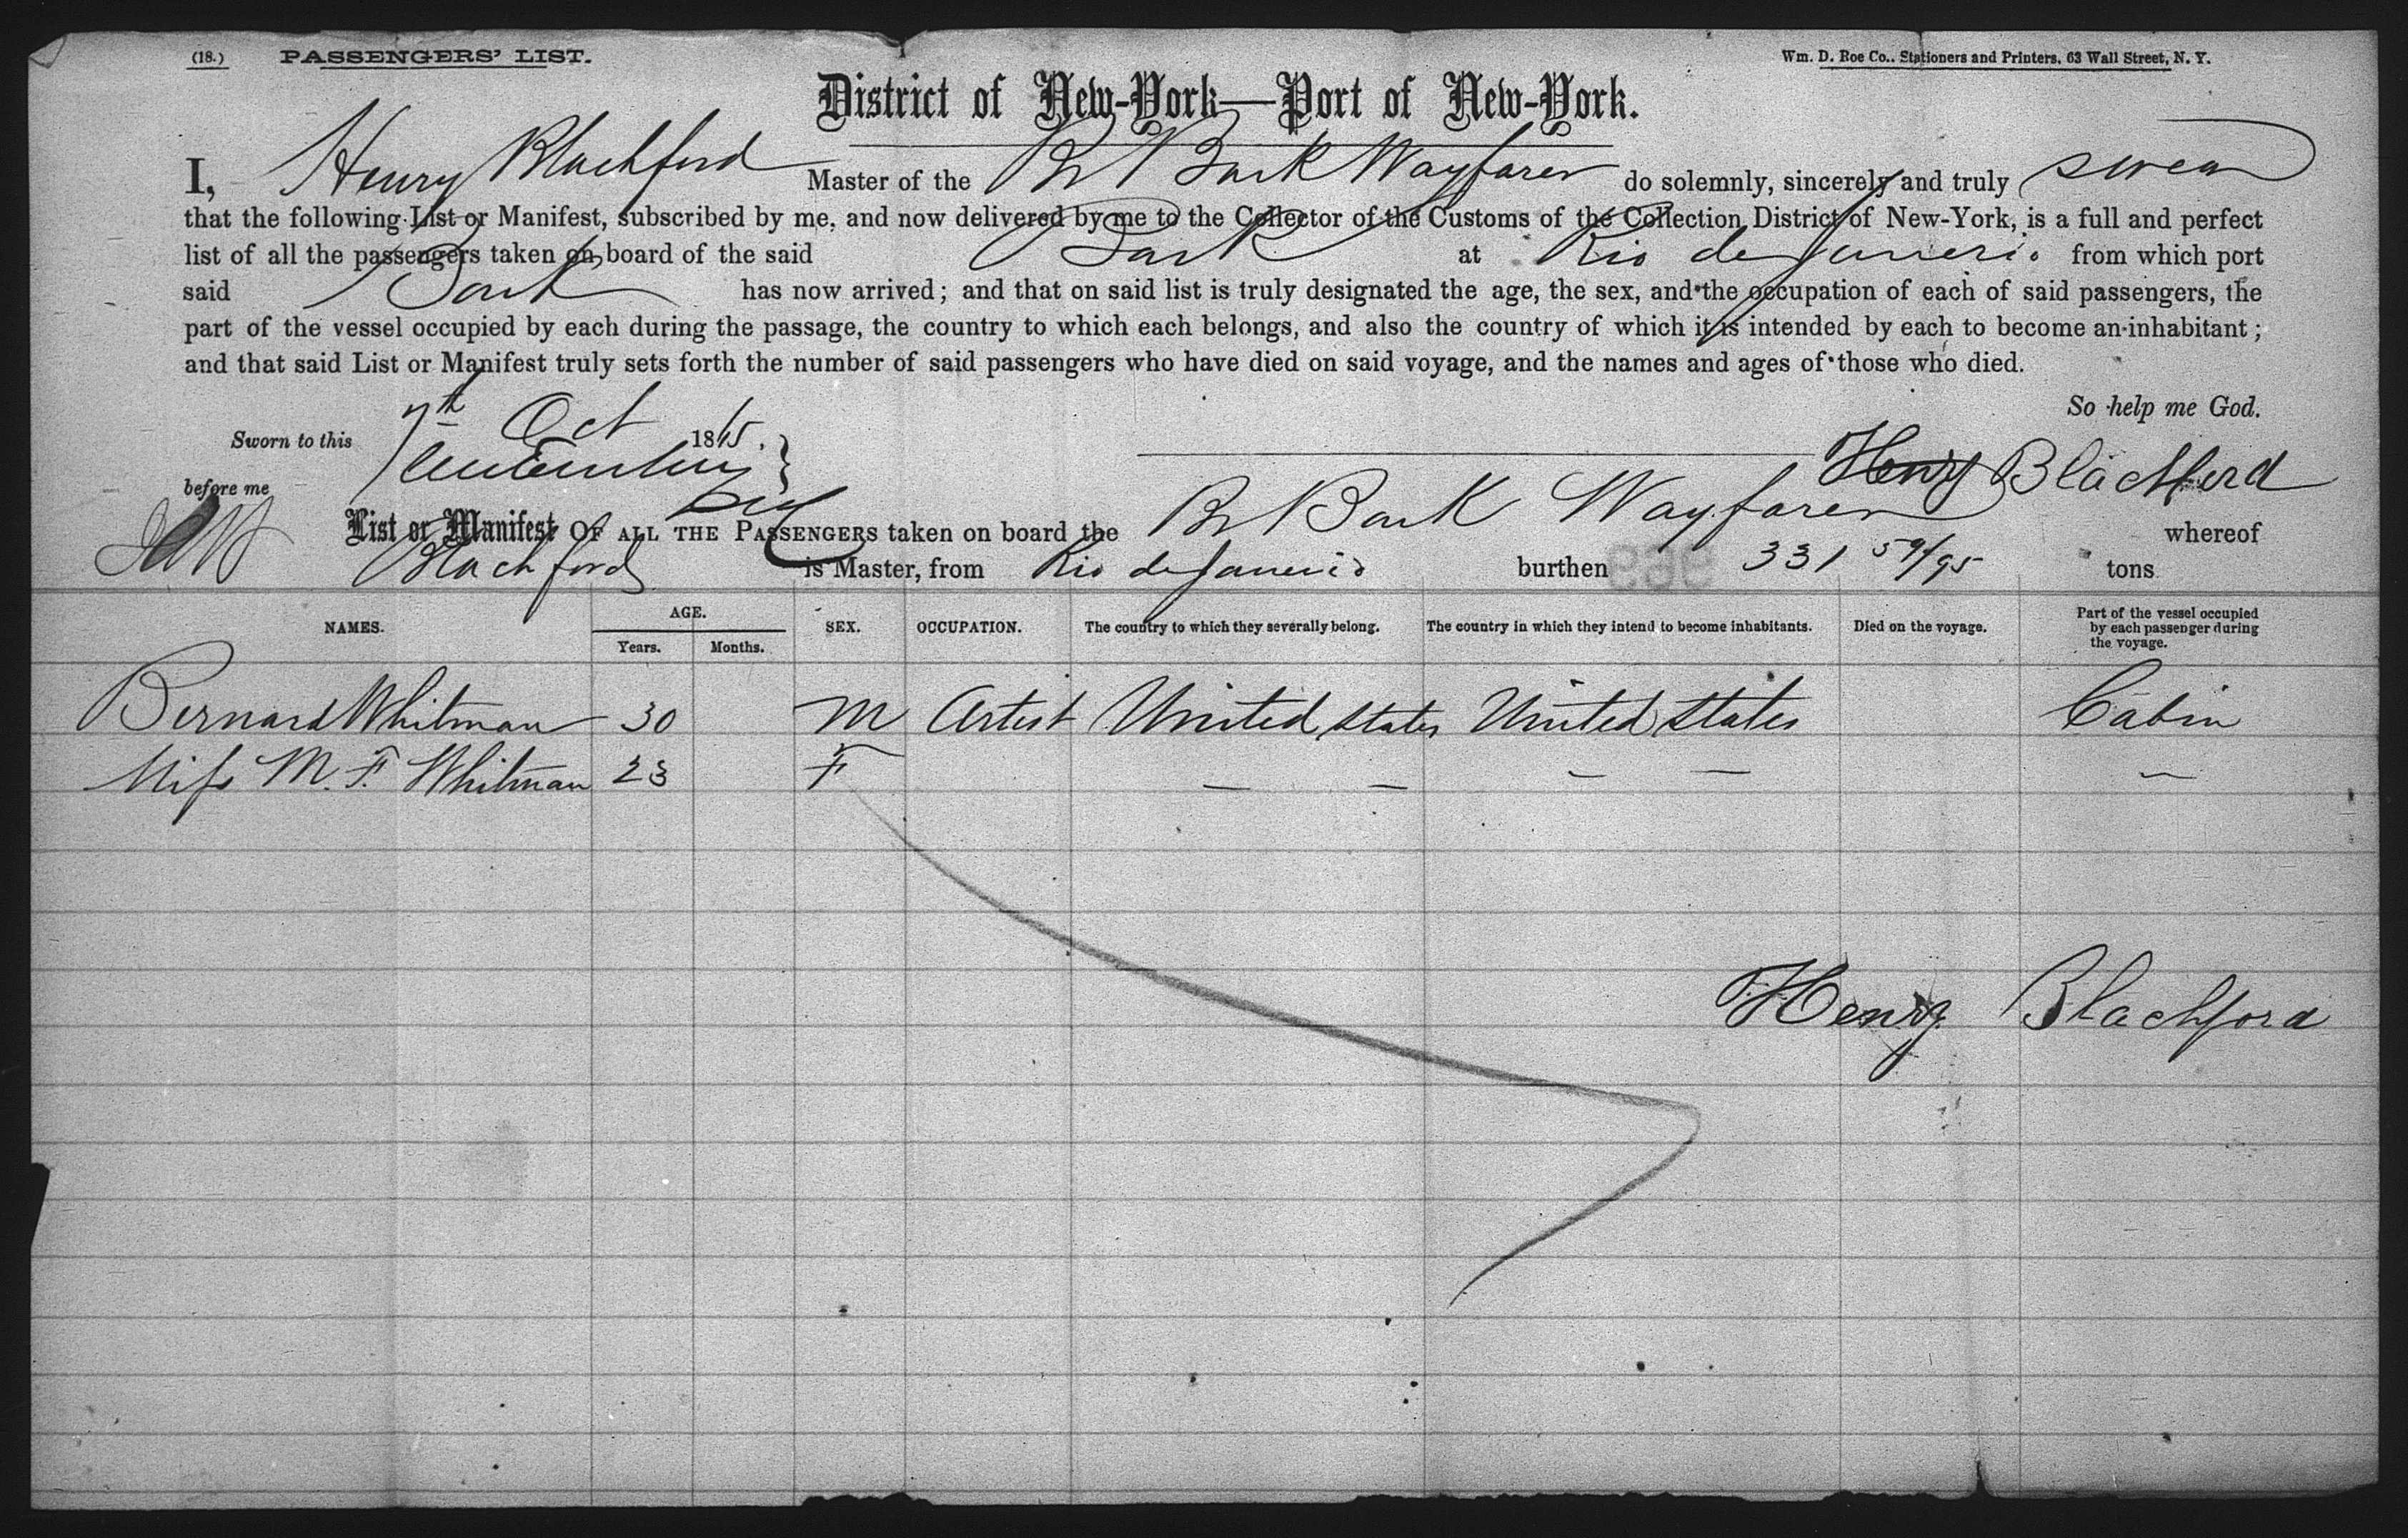 (18.) PASSENGERS' LIST. Wm. D. Roe Co., Stationers and Printers, 63 Wall Street, N. Y.
District of New-York—Port of New-York.
I, Henry Blachford Master of the Br Bark Wayfarer do solemnly, sincerely and truly swear
that the following List or Manifest, subscribed by me, and now delivered by me to the Collector of the Customs of the Collection District of New-York, is a full and perfect
list of all the passengers taken on board of the said Bark at Rio de Janerio from which port
said Bark has now arrived; and that on said list is truly designated the age, the sex, and the occupation of each of said passengers, the
part of the vessel occupied by each during the passage, the country to which each belongs, and also the country of which it is intended by each to become an inhabitant;
and that said List or Manifest truly sets forth the number of said passengers who have died on said voyage, and the names and ages of those who died.
So help me God.
Sworn to this 7th Oct 18
before me Henry Blachford
List or Manifest OF ALL THE PASSENGERS taken on board the Br Bark Wayfarer whereof
Blachford is Master, from Rio de Janerio burthen 331 59/95 tons
NAMES. AGE. SEX. OCCUPATION. The country to which they severally belong. The country in which they intend to become inhabitants. Died on the voyage. Part of the vessel occupied by each passenger during the voyage.
Years. Months.
Bernard Whitman 30 M Artist United States United States Cabin
Miss M. F. Whitman 23 F — — — — —
Henry Blachford